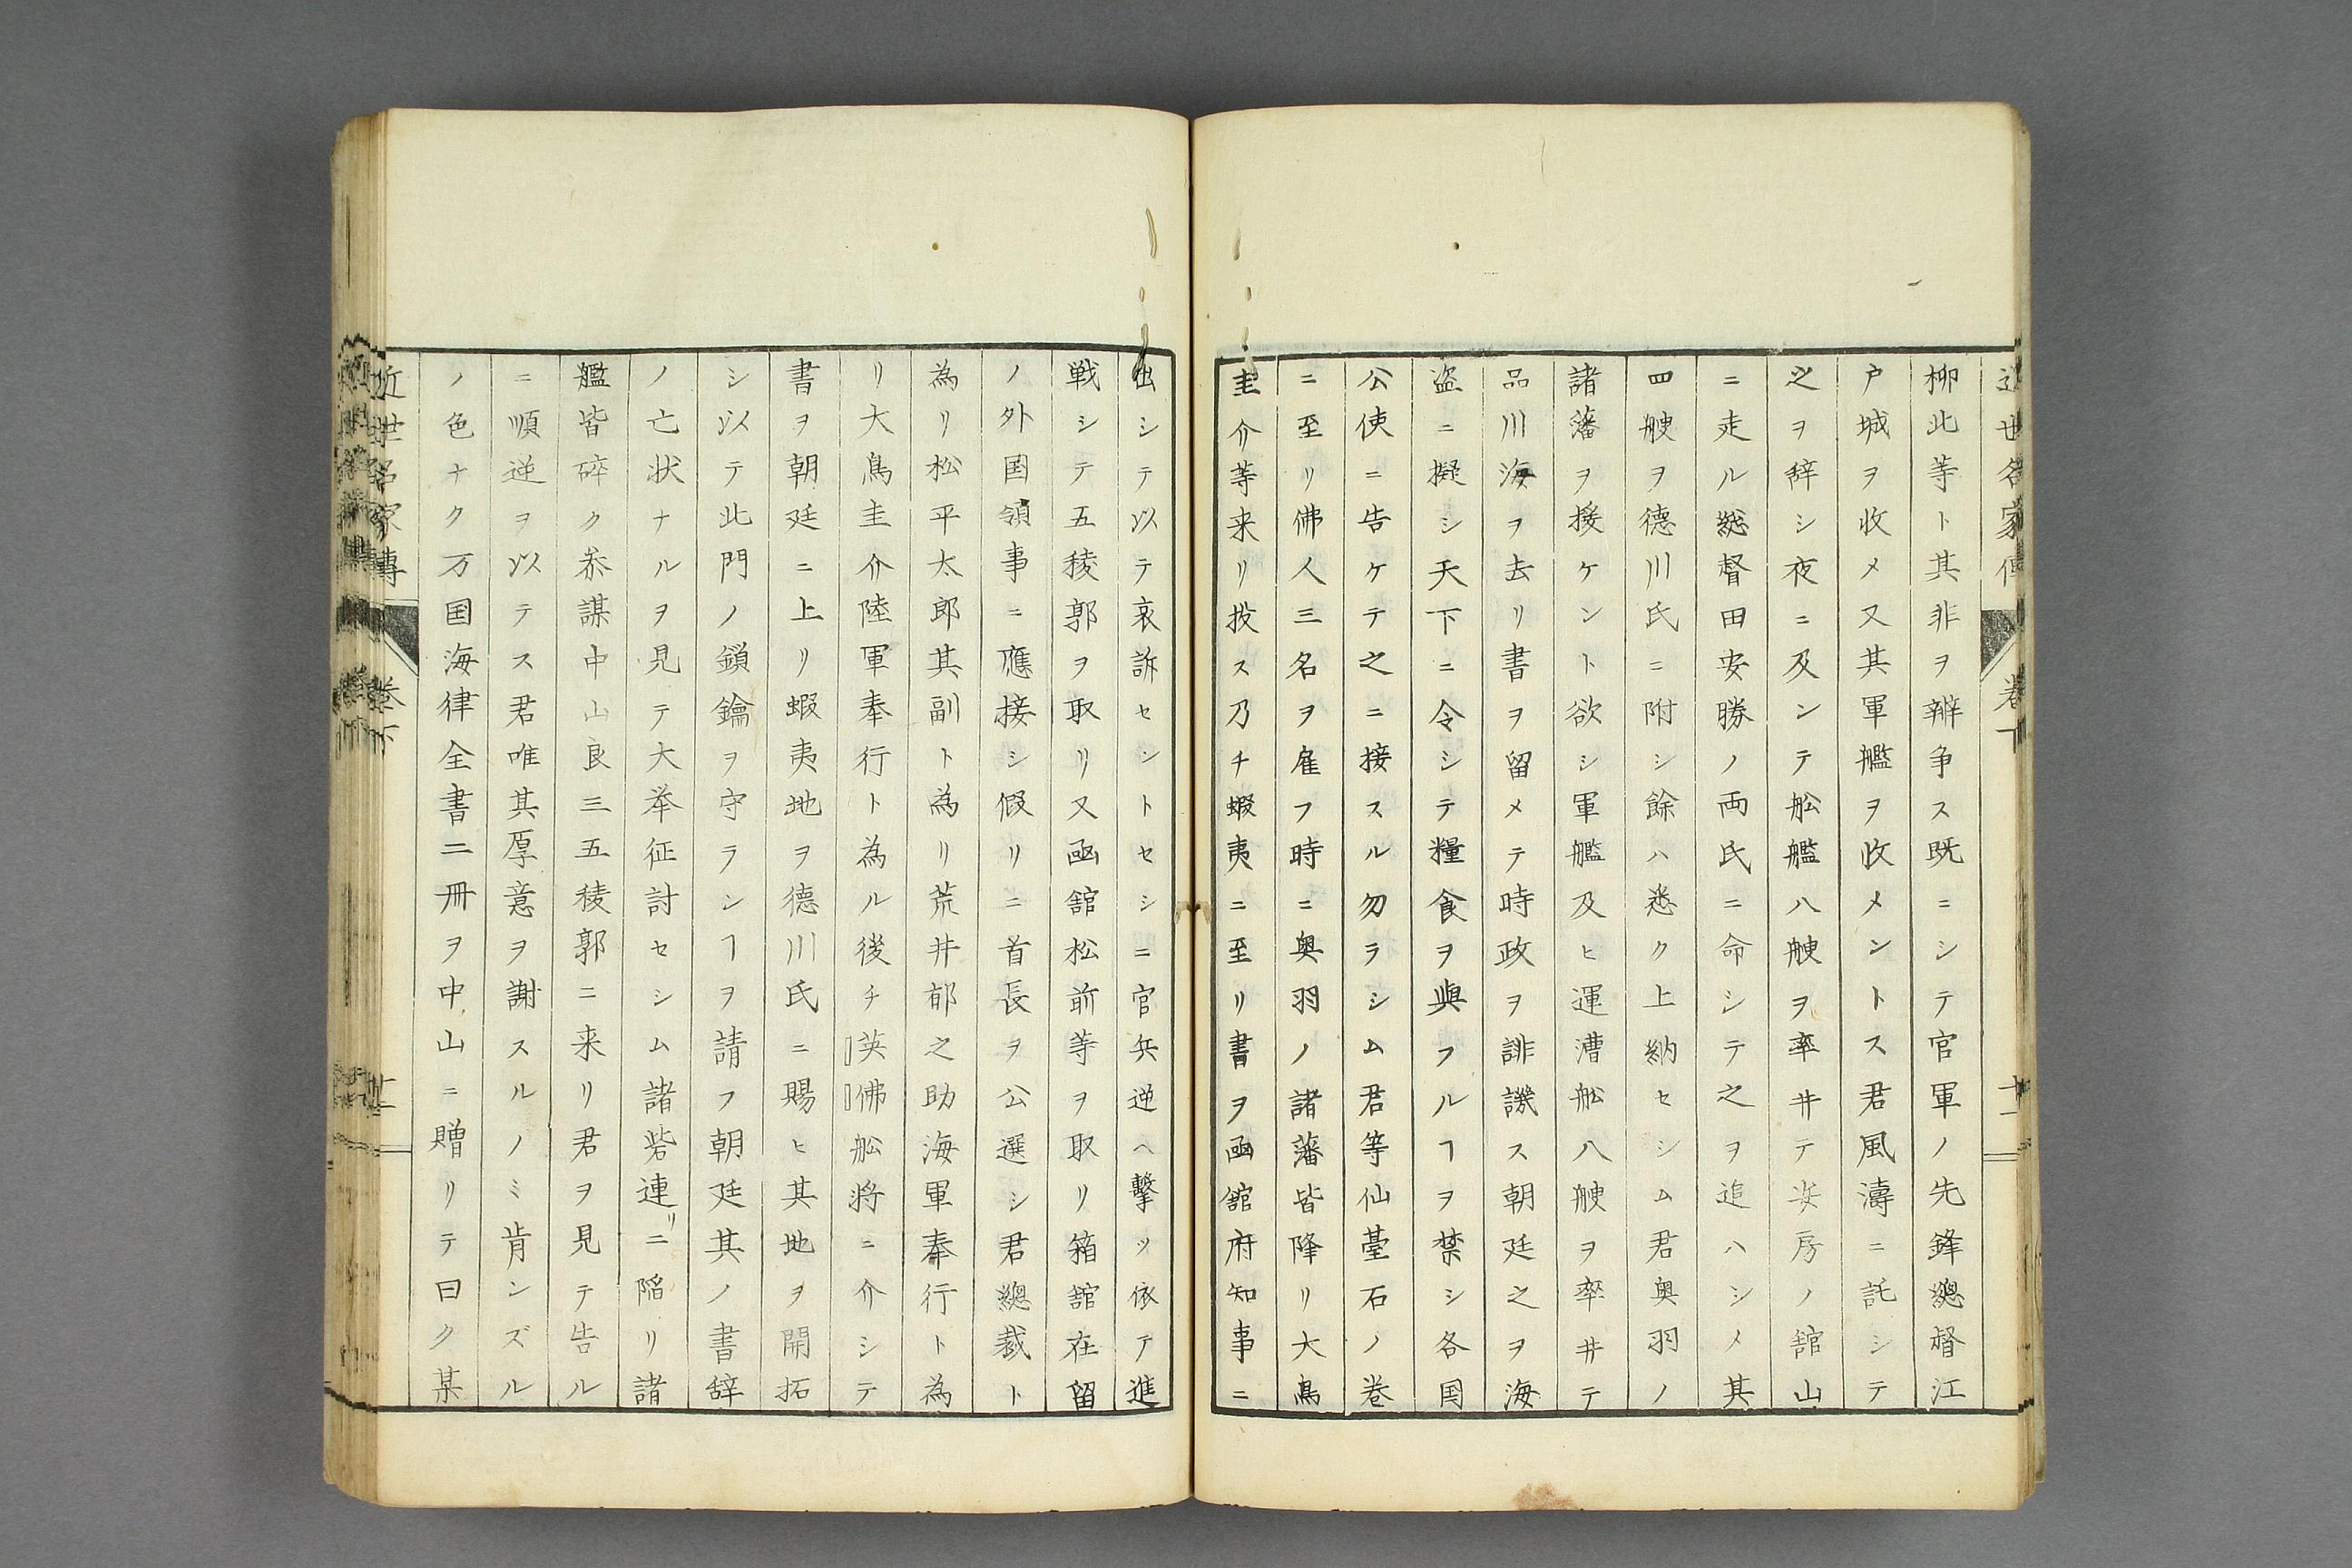 近世名家傳 卷下
柳此等ト其非ヲ辨争ス既ニシテ官軍ノ先鋒總督江
戸城ヲ收メ又其軍艦ヲ收メントス君風濤ニ託シテ
之ヲ辞シ夜ニ及ンテ舩艦八艘ヲ率井テ安房ノ舘山
ニ走ル総督田安勝ノ両氏ニ命シテ之ヲ追ハシメ其
四艘ヲ德川氏ニ附シ餘ハ悉ク上納セシム君奥羽ノ
諸藩ヲ援ケント欲シ軍艦及ヒ運漕舩八艘ヲ率井テ
品川海ヲ去リ書ヲ留メテ時政ヲ誹譏ス朝廷之ヲ海
盗ニ擬シ天下ニ令シテ糧食ヲ與フルヿヲ禁シ各国
公使ニ告ケテ之ニ接スル勿ラシム君等仙臺石ノ巻
ニ至リ佛人三名ヲ雇フ時ニ奥羽ノ諸藩皆降リ大鳥
圭介等来リ投ス乃チ蝦夷ニ至リ書ヲ凾舘府知事ニ
出シテ以テ哀訴セントセシニ官兵逆ヘ擊ツ依テ進
戦シテ五稜郭ヲ取リ又凾舘松前等ヲ取リ箱舘在留
ノ外国領事ニ應接シ假リニ首長ヲ公選シ君總裁ト
為リ松平太郎其副ト為リ荒井郁之助海軍奉行ト為
リ大鳥圭介陸軍奉行ト為ル後チ英佛舩将ニ介シテ
書ヲ朝廷ニ上リ蝦夷地ヲ德川氏ニ賜ヒ其地ヲ開拓
シ以テ此門ノ鎖鑰ヲ守ランヿヲ請フ朝廷其ノ書辞
ノ亡状ナルヲ見テ大举征討セシム諸砦連リニ陷リ諸
艦皆碎ク叅謀中山良三五稜郭ニ来リ君ヲ見テ告ル
ニ順逆ヲ以テス君唯其厚意ヲ謝スルノミ肯ンズル
ノ色ナク万国海律全書二冊ヲ中山ニ贈リテ曰ク某
近世名家傳 卷下